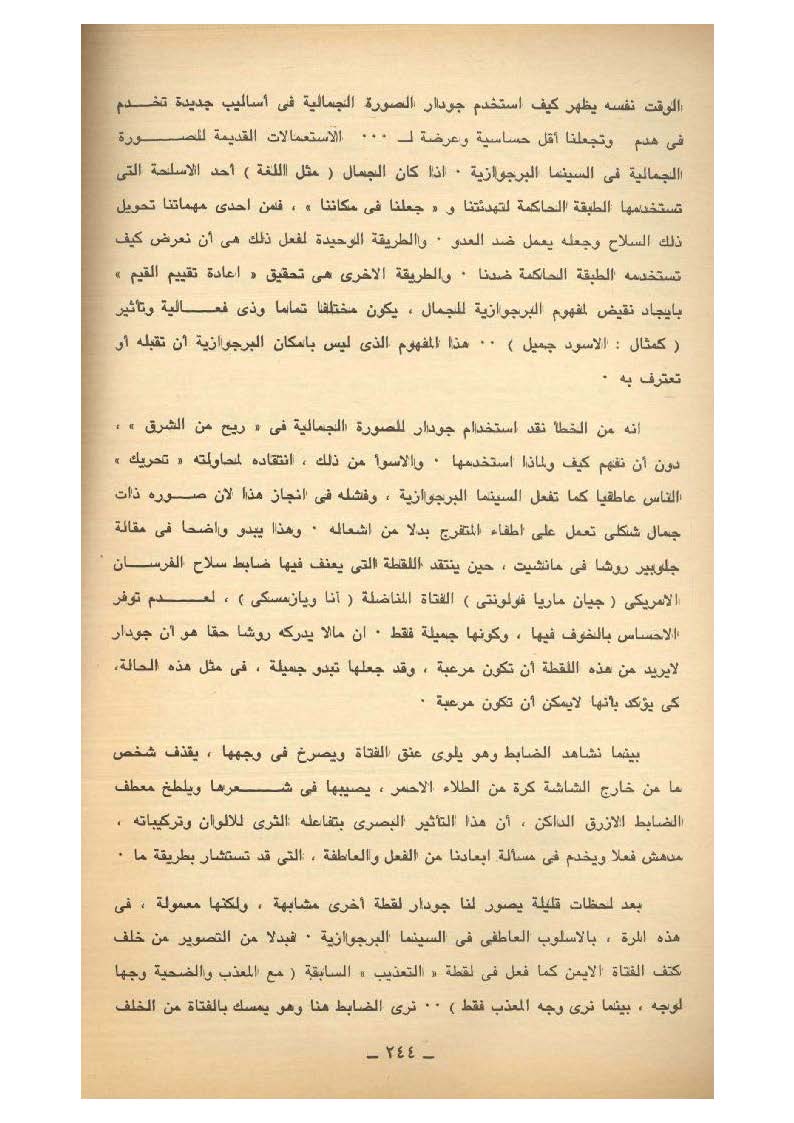 الوقت نفسه يظهر كيف استخدم جودار الصورة الجمالية فى أساليب جديدة تخـــدم
فى هدم وتجعلنا أقل حساسية وعرضة لـ ٠٠٠ الاستعمالات القديمة للصـــــورة
الجمالية فى السينما البرجوازية ٠ اذا كان الجمال ( مثل اللغة ) أحد الاسلحة التى
تستخدمها الطبقة الحاكمة لتهدئتنا و « جعلنا فى مكاننا » ، فمن احدى مهماتنا تحويل
ذلك السلاح وجعله يعمل ضد العدو ٠ والطريقة الوحيدة لفعل ذلك هى أن نعرض كيف
تستخدمه الطبقة الحاكمة ضدنا ٠ والطريقة الاخرى هى تحقيق « اعادة تقييم القيم »
بايجاد نقيض لمفهوم البرجوازية للجمال ، يكون مختلفا تماما وذى فعـــالية وتأثير
( كمثال : الاسود جميل ) ٠٠ هذا المفهوم الذى ليس بامكان البرجوازية أن تقبله أو
تعترف به ٠
انه من الخطأ نقد استخدام جودار للصورة الجمالية فى « ريح من الشرق » ،
دون أن نفهم كيف ولماذا استخدمها ٠ والاسوأ من ذلك ، انتقاده لمحاولته « تحريك »
الناس عاطفيا كما تفعل السينما البرجوازية ، وفشله فى انجاز هذا لان صـــوره ذات
جمال شكلى تعمل على اطفاء المتفرج بدلا من اشعاله ٠ وهذا يبدو واضحا فى مقالة
جلوبير روشا فى مانشيت ، حين ينتقد اللقطة التى يعنف فيها ضابط سلاح الفرســـان
الامريكى ( جيان ماريا فولونتى ) الفتاة المناضلة ( آنا ويازمسكى ) ، لعـــدم توفر
الاحساس بالخوف فيها ، وكونها جميلة فقط ٠ ان مالا يدركه روشا حقا هو أن جودار
لايريد من هذه اللقطة أن تكون مرعبة ، وقد جعلها تبدو جميلة ، فى مثل هذه الحالة،
كى يؤكد بأنها لايمكن أن تكون مرعبة ٠
بينما نشاهد الضابط وهو يلوى عنق الفتاة ويصرخ فى وجهها ، يقذف شخص
ما من خارج الشاشة كرة من الطلاء الاحمر ، يصيبها فى شـــــعرها ويلطخ معطف
الضابط الازرق الداكن ، أن هذا التأثير البصرى بتفاعله الثرى للالوان وتركيباته ،
مدهش فعلا ويخدم فى مسألة ابعادنا من الفعل والعاطفة ، التى قد تستشار بطريقة ما ٠
بعد لحظات قليلة يصور لنا جودار لقطة أخرى مشابهة ، ولكنها معمولة ، فى
هذه المرة ، بالاسلوب العاطفى فى السينما البرجوازية ٠ فبدلا من التصوير من خلف
كتف الفتاة الايمن كما فعل فى لقطة « التعذيب » السابقة ( مع المعذب والضحية وجها
لوجه ، بينما نرى وجه المعذب فقط ) ٠٠ نرى الضابط هنا وهو يمسك بالفتاة من الخلف
ـ ٢٤٤ ـ